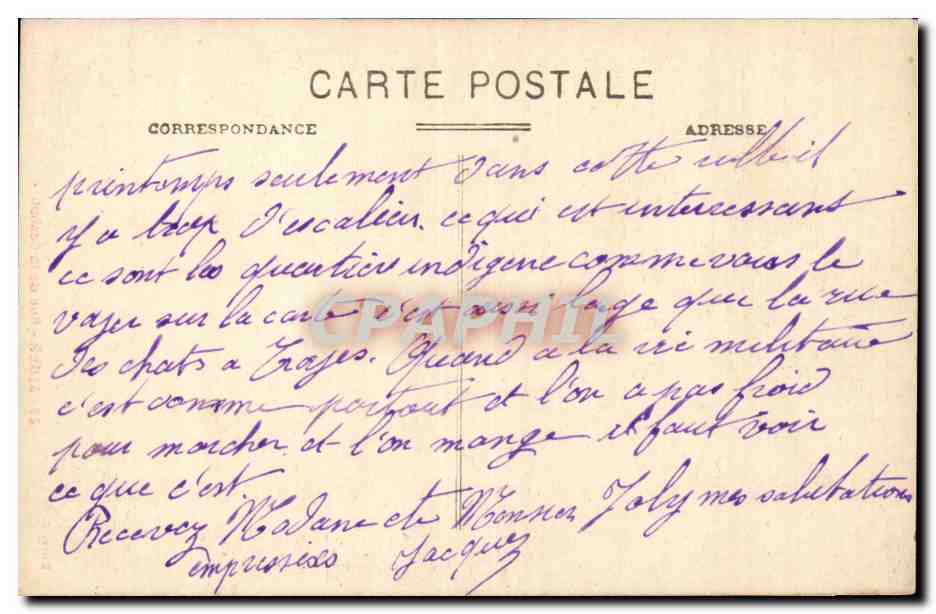 CARTE POSTALE
CORRESPONDANCE
ADRESSE
printemps seulement dans cette ville il
y a trop d'escalier. ce qui est interressant
ce sont les quartier indigene comme vous le
voyer sur la carte c'est aussi lage que la rue
des chats a Troyes. Quand a la vie militaire
c'est comme partout et l'on a pas froid
pour marcher et l'on mange il faut voir
ce que c'est.
Recevez Madame et Monsieur Joly mes salutations
empressées Jacques
CPAPHIL
ALGER - Rue de la Casbah